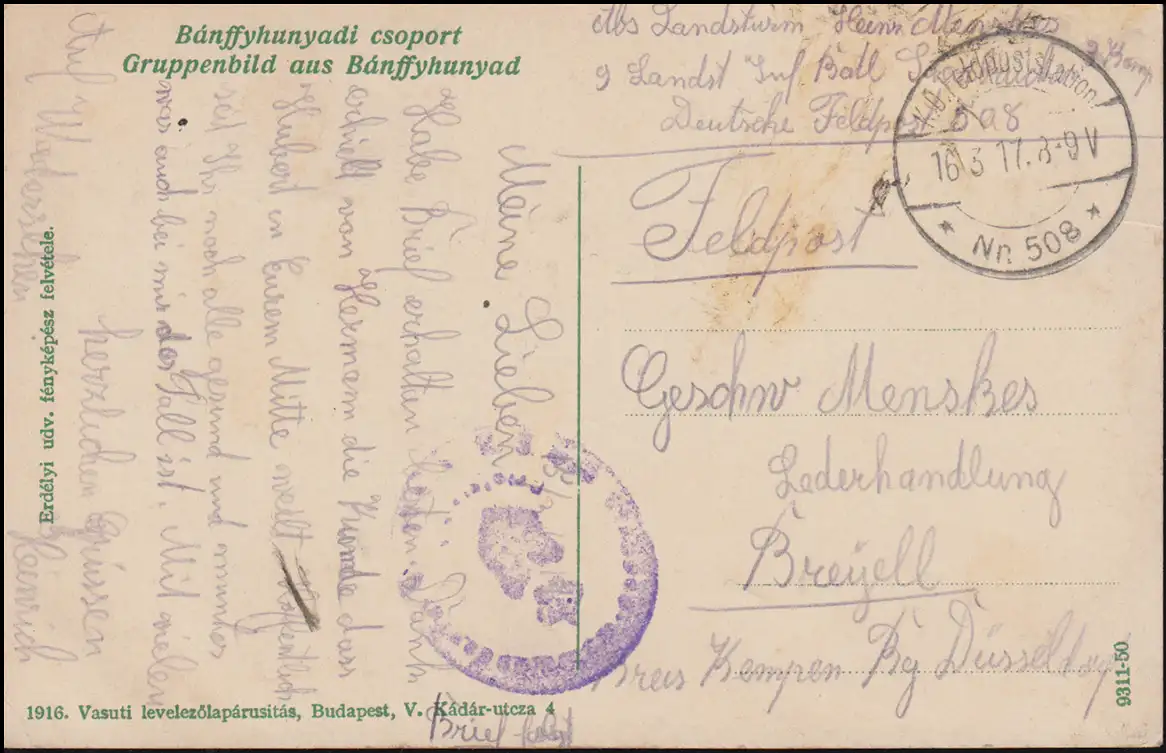 Bánffyhunyadi csoport
Gruppenbild aus Bánffyhunyad
Abs Landsturm Heinr Menskes
9 Landst Inf Batl 3 Komp
Deutsche Feldpost 508
K.D. Feldpoststation
16 3 17. 8-9 V
* Nr. 508 *
Feldpost
Geschw Menskes
Lederhandlung
Breÿell
Kreis Kempen Bz Düsseldorf
Meine Lieben
Habe Brief erhalten besten Dank
erhielt von Hermann die Kunde dass
Hubert in Eurem Mitte weilt hoffentlich
seit Ihr noch alle gesund und munter
was auch bei mir der Fall ist. Mit vielen
herzlichen Grüssen
Heinrich
Auf Wiedersehen
Brief folgt
Erdélyi udv. fényképész felvétele.
1916. Vasuti levelezőlapárusitás, Budapest, V. Kádár-utcza 4
9311-50